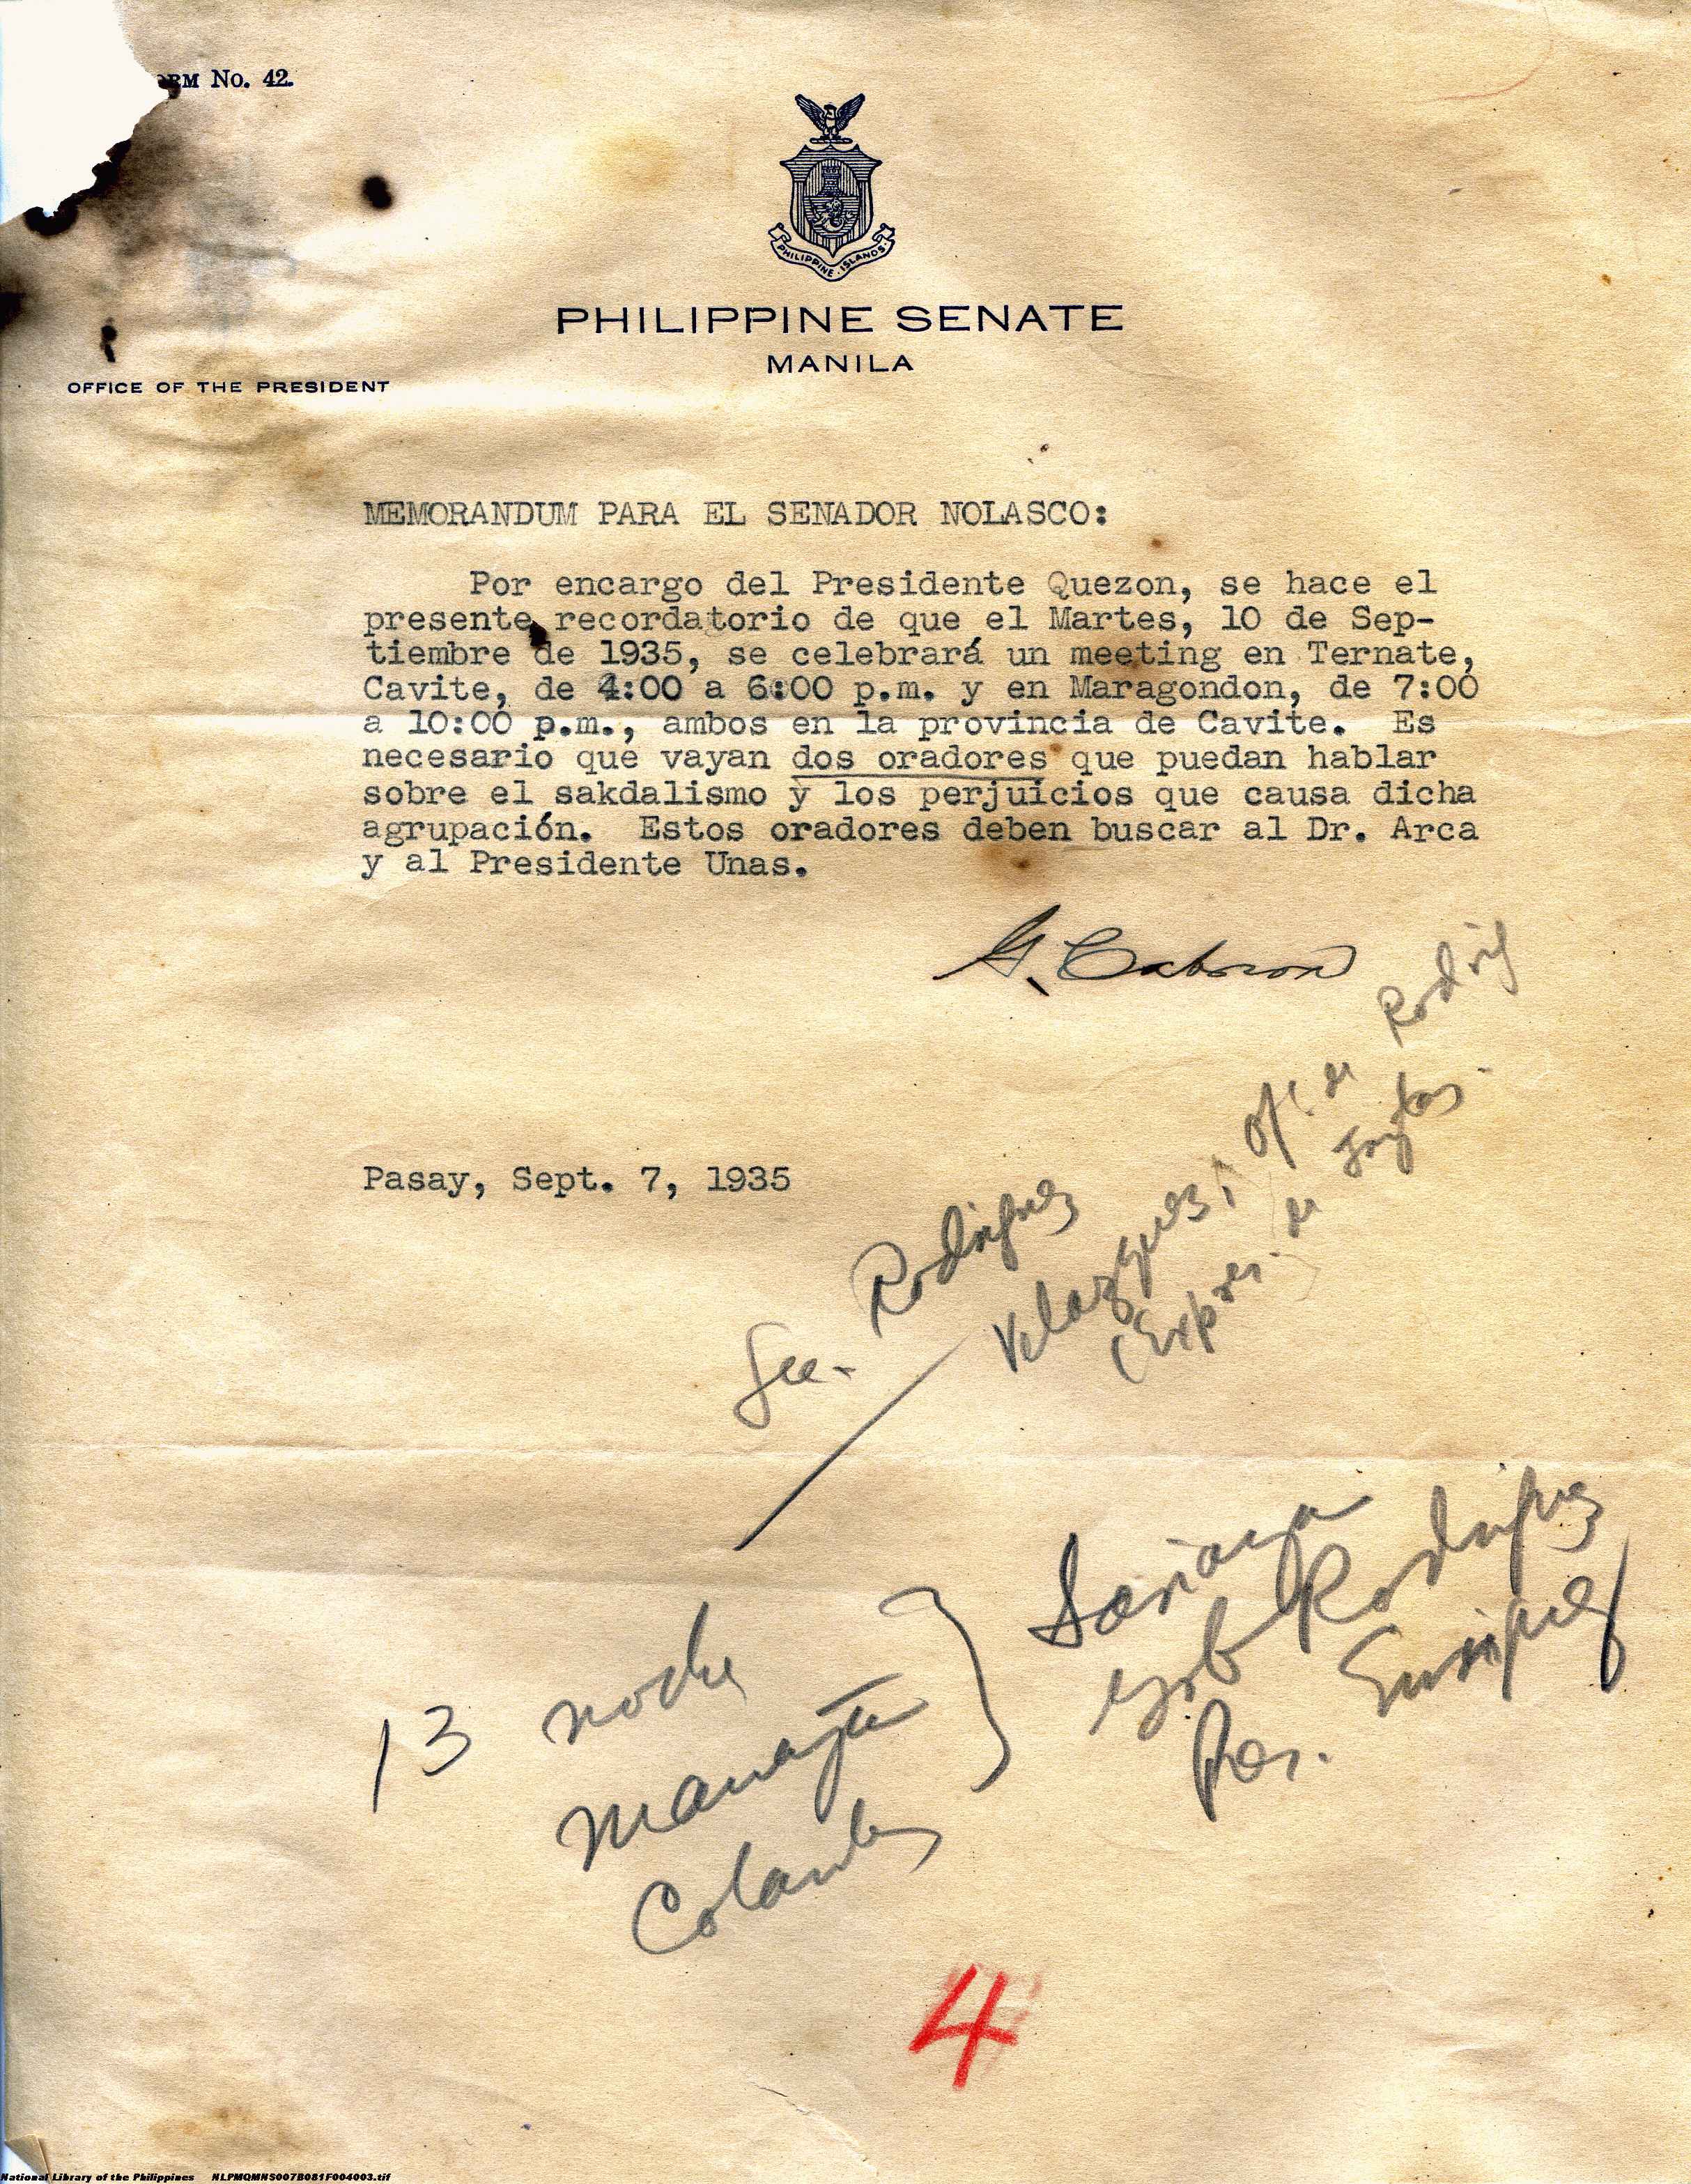 ORM No. 42.
PHILIPPINE ISLANDS
PHILIPPINE SENATE
MANILA
OFFICE OF THE PRESIDENT
MEMORANDUM PARA EL SENADOR NOLASCO:
Por encargo del Presidente Quezon, se hace el
presente recordatorio de que el Martes, 10 de Sep-
tiembre de 1935, se celebrará un meeting en Ternate,
Cavite, de 4:00 a 6:00 p.m. y en Maragondon, de 7:00
a 10:00 p.m., ambos en la provincia de Cavite. Es
necesario que vayan dos oradores que puedan hablar
sobre el sakdalismo y los perjuicios que causa dicha
agrupación. Estos oradores deben buscar al Dr. Arca
y al Presidente Unas.
Pasay, Sept. 7, 1935
Rodriguez
Velazquez, Of. de
13 noche
Rodriguez
4
National Library of the Philippines NLPMQMNS007B081F004003.tif